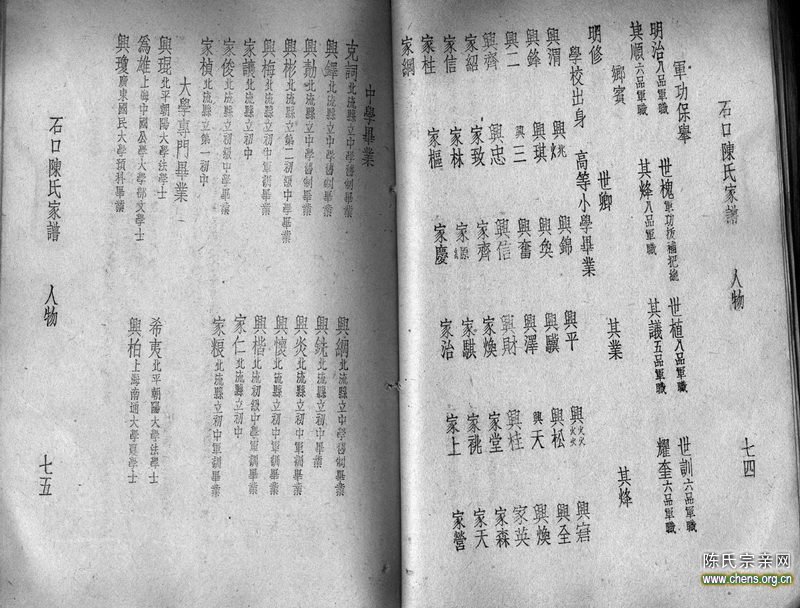 石口陳氏家譜 人物 七四
軍功保舉
明治八品軍職 世槐軍功拔補把總 世植八品軍職 世訓六品軍職
其順六品軍職 其烽八品軍職 其議五品軍職 耀奎六品軍職
鄉賓
明修 世卿 其業 其烽
學校出身 高等小學畢業
興渭 興兆 興錦 興平
興鋒 興琪 興奐 興驥 興松 興全
興二 興三 興奮 興澤 興天 興煥
興齊 興忠 興信 興財 興柱 家英
家紹 家致 家齊 家煥 家堂 家森
家信 家林 家源 家騏 家祧 家天
家柱 家樞 家慶 家治 家上 家營
家綱
中學畢業
克訶北流縣立中學舊制畢業 興綱北流縣立中學舊制畢業
興鐸北流縣立中學舊制畢業 興銑北流縣立初中畢業
興勛北流縣立中學舊制畢業 興炎北流縣立初中軍訓畢業
興彬北流縣立第二初級中學畢業 興懷北流縣立初中軍訓畢業
興梅北流縣立初中軍訓畢業 興楷北流初級中學軍訓畢業
家議北流縣立初中畢業 家仁北流縣立初中
家俊北流縣立初級中學畢業 家粮北流縣立初中軍訓畢業
家楨北流縣立第一初中
大學專門畢業
興琨北平朝陽大學法學士 希夷北平朝陽大學法學士
為雄上海中國公學大學部文學士 興柏上海南通大學農學士
興瓊廣東國民大學預科畢業
石口陳氏家譜 人物 七五
陈氏宗亲网
www.chens.org.cn